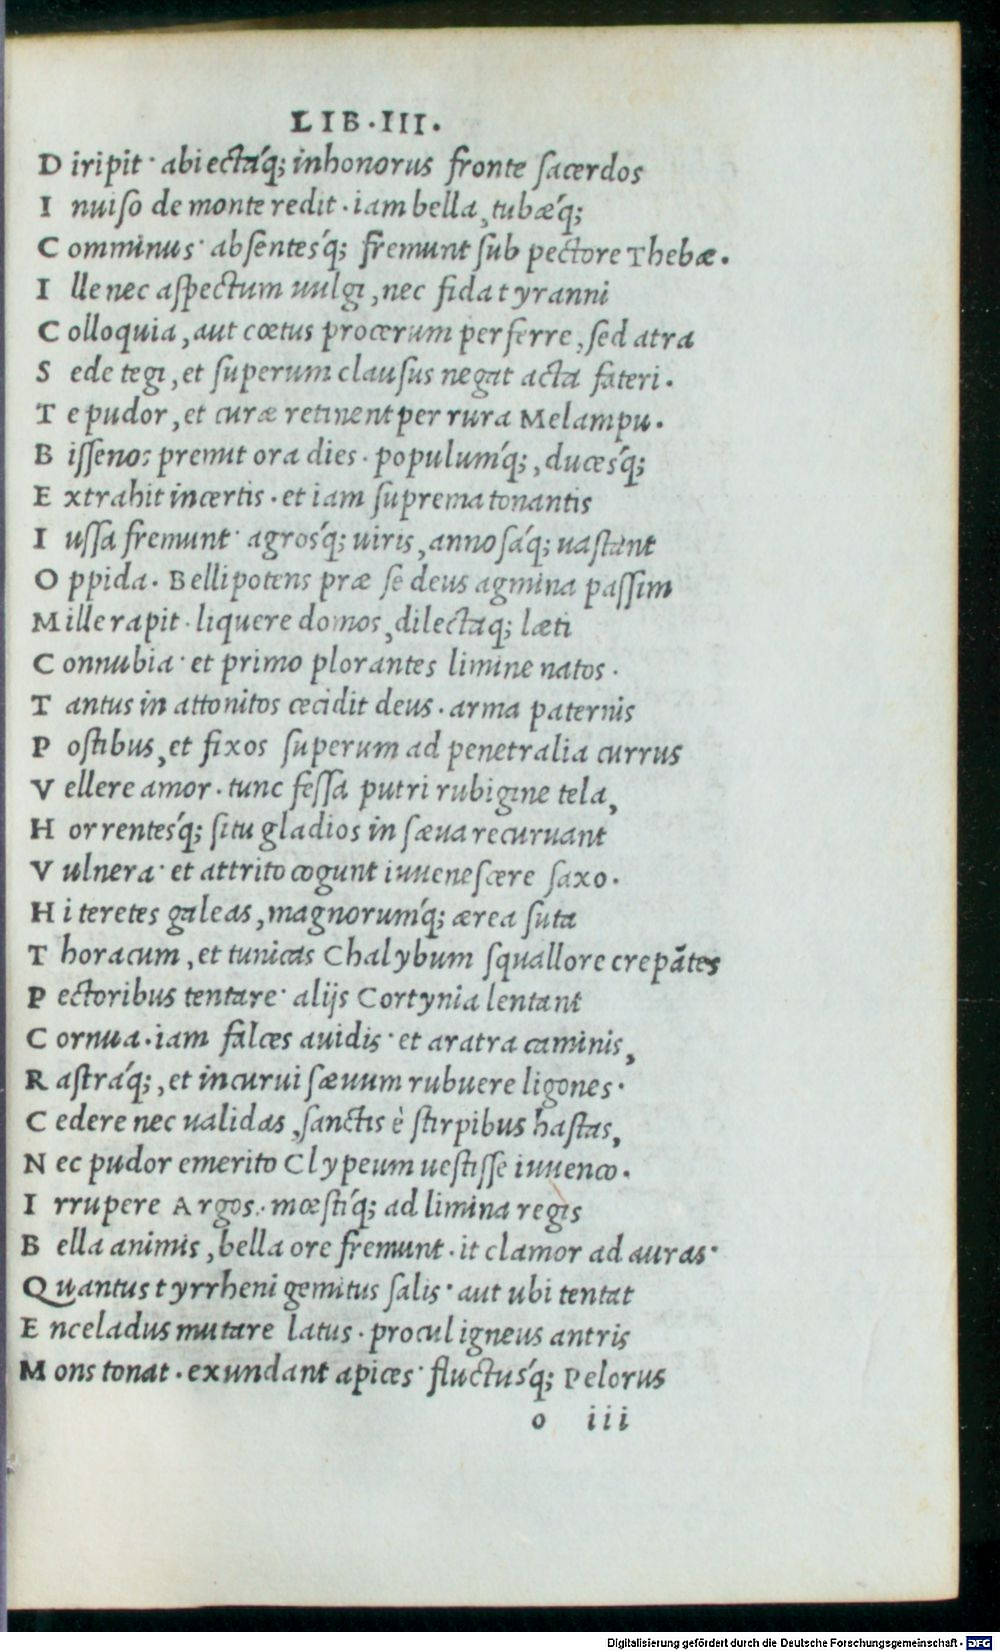 LIB·III.
D iripit· abiectáq; inhonorus fronte ſacerdos
I nuiſo de monte redit·iam bella, tubæq́;
C omminus· abſentesq́; fremunt ſub pectore Thebæ.
I lle nec aſpectum uulgi, nec fida tyranni
C olloquia, aut cœtus procerum perferre, ſed atra
S ede tegi, et ſuperum clauſus negat acta fateri.
T e pudor, et curæ retinent per rura Melampu.
B iſſenos premit ora dies·populumq́;, ducesq́;
E xtrahit incertis·et iam ſuprema tonantis
I uſſa fremunt· agrosq́; uiris, annoſáq; uaſtant
O ppida. Bellipotens præ ſe deus agmina paſſim
M ille rapit·liquere domos, dilectaq; læti
C onnubia· et primo plorantes limine natos.
T antus in attonitos cecidit deus·arma paternis
P oſtibus, et fixos ſuperum ad penetralia currus
V ellere amor·tunc feſſa putri rubigine tela,
H orrentesq́; ſitu gladios in ſæua recuruant
V ulnera· et attrito cogunt iuueneſcere ſaxo.
H i teretes galeas, magnorumq́; ærea ſuta
T horacum, et tunicas Chalybum ſquallore crepātes
P ectoribus tentare· alijs Cortynia lentant
C ornua·iam falces auidis· et aratra caminis,
R aſtráq;, et incurui ſæuum rubuere ligones.
C edere nec ualidas, ſanctis è ſtirpibus haſtas,
N ec pudor emerito Clypeum ueſtiſſe iuuenco.
I rrupere Argos.·mœſtiq́; ad limina regis
B ella animis, bella ore fremunt·it clamor ad auras·
Quantus tyrrheni gemitus ſalis· aut ubi tentat
E nceladus mutare latus·procul igneus antris
M ons tonat·exundant apices· fluctusq́; Pelorus
o iii
Digitalisierung gefördert durch die Deutsche Forschungsgemeinschaft - DFG